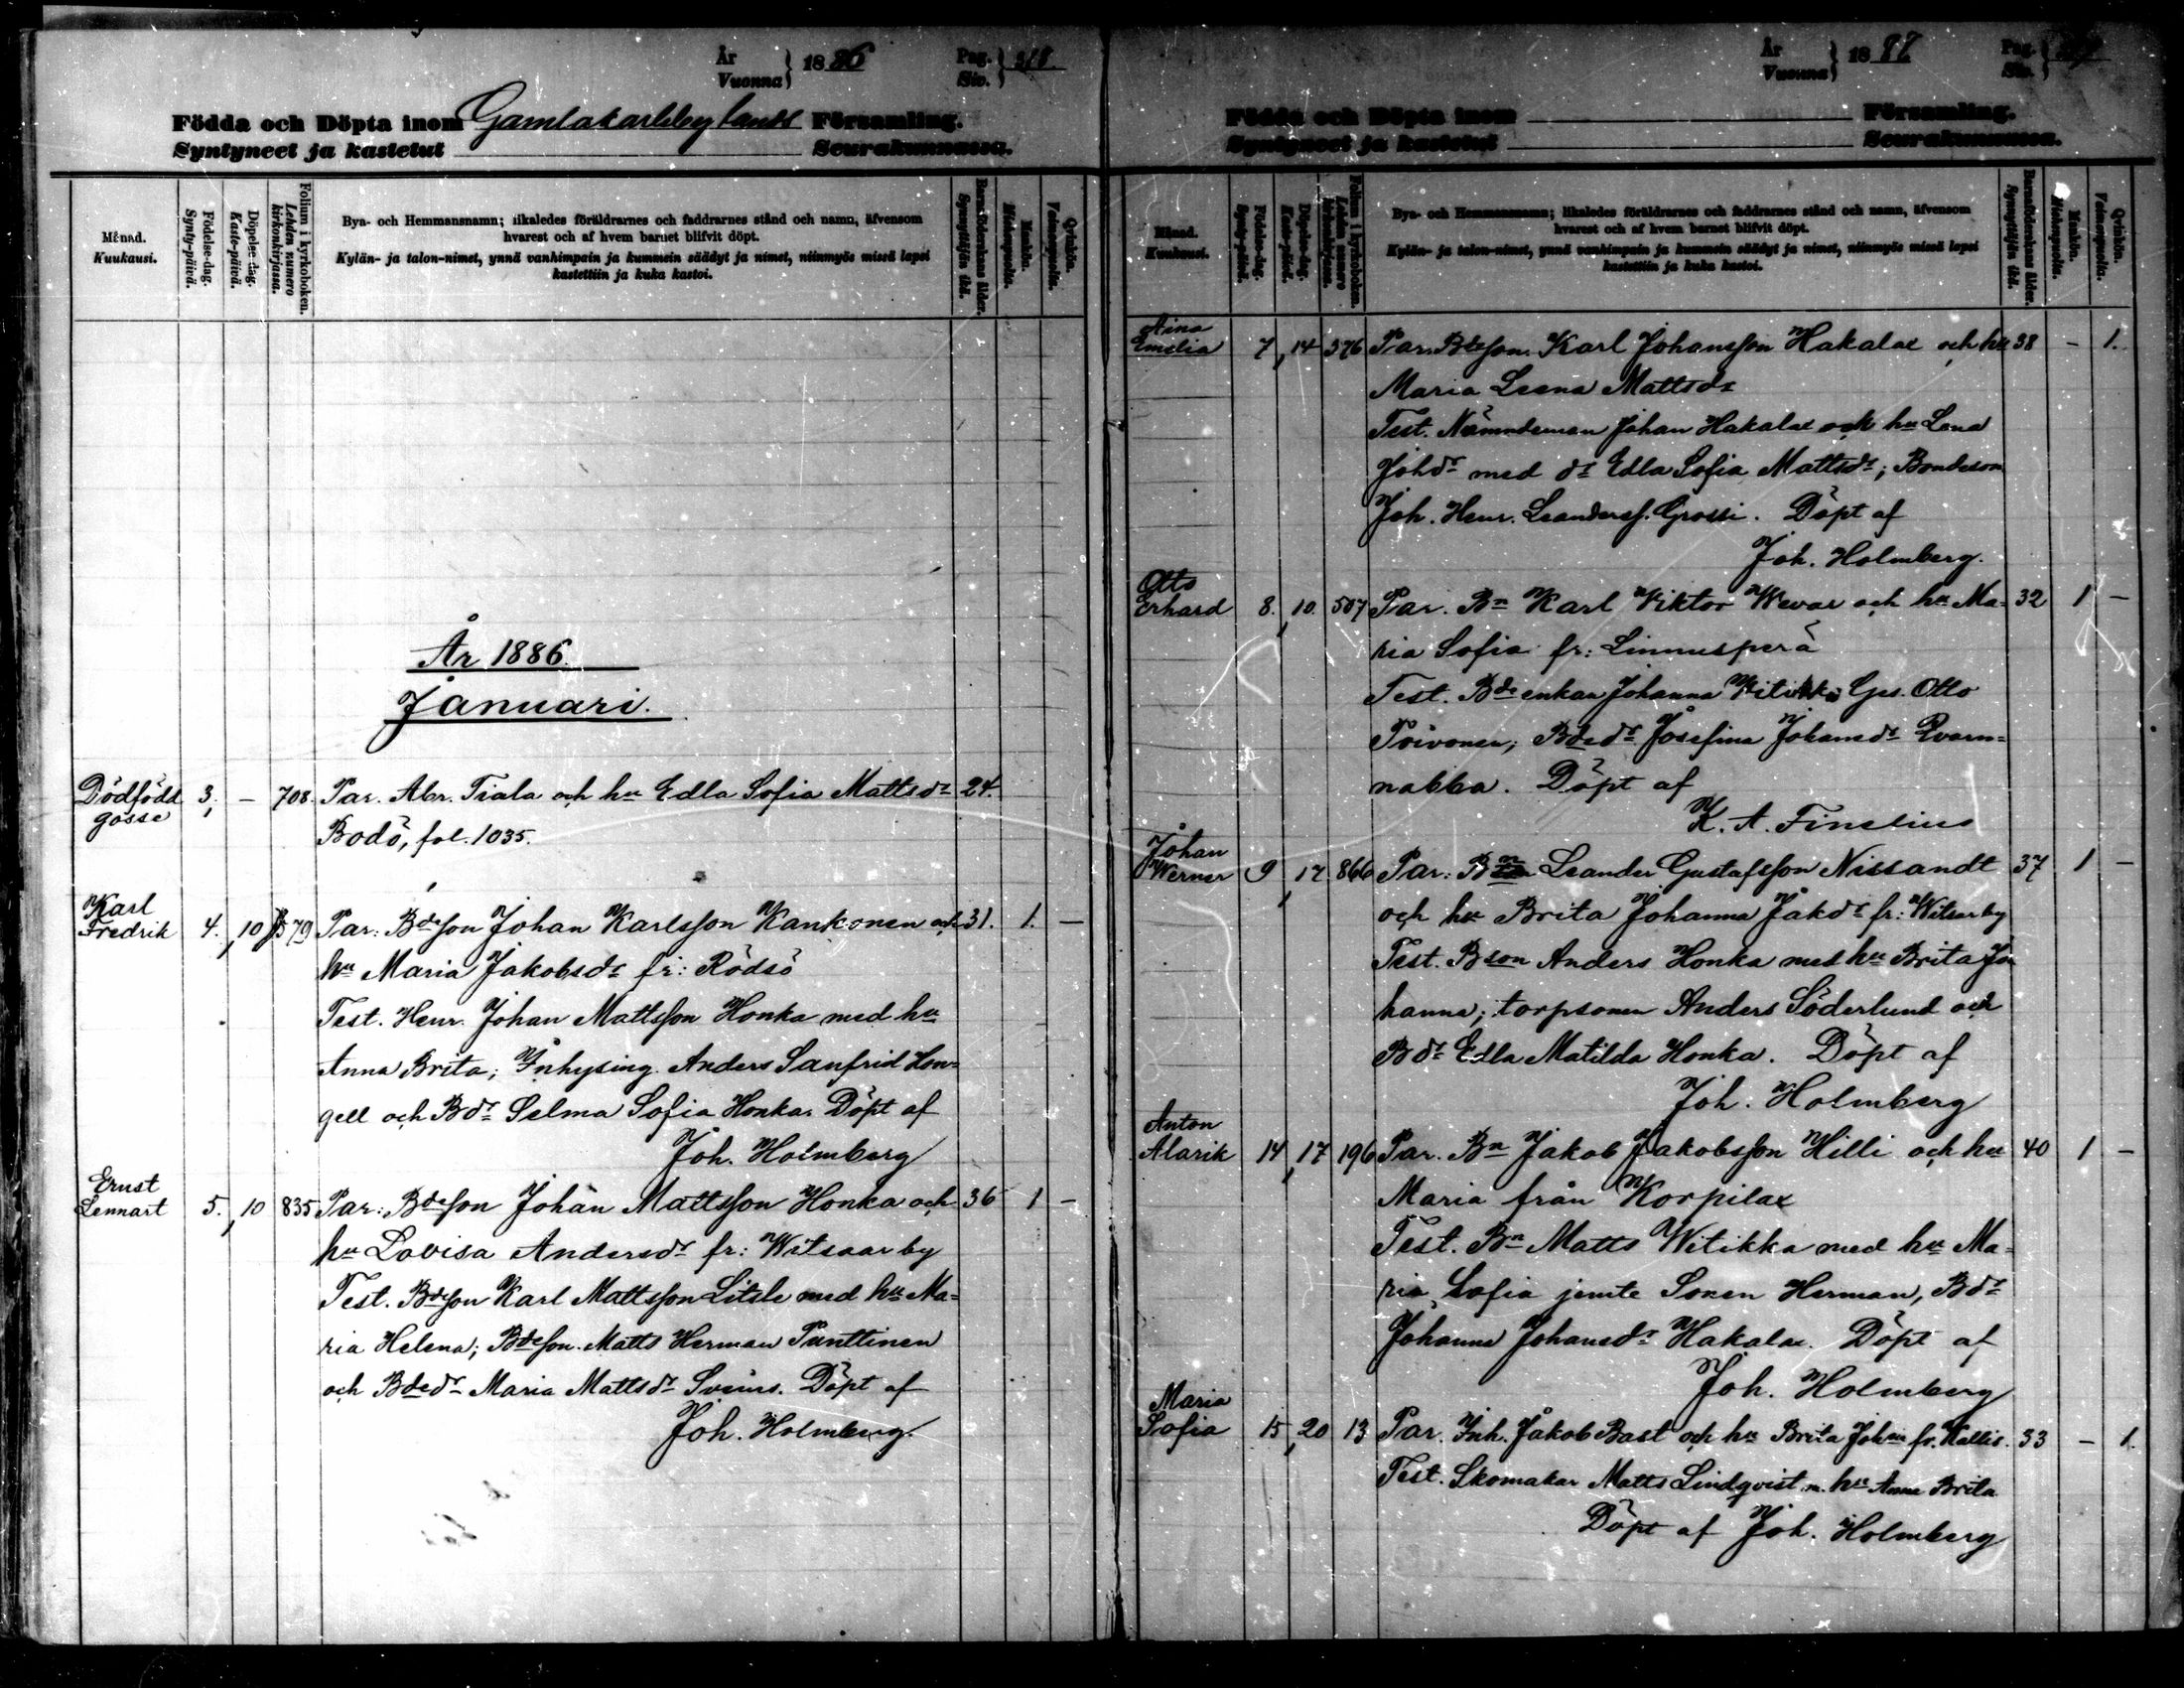 År
Vuonna } 1886 Pag.
Siv. } 318.
Födda och Döpta inom Gamlakarleby lands Församling.
Syntyneet ja kastetut Seurakunnassa.
Månad.
Kuukausi.
Födelse-dag.
Synty-päivä.
Döpelse-dag.
Kaste-päivä.
Folium i kyrkoboken.
Lehden numero
kirkonkirjassa.
Bya- och Hemmansnamn; likaledes föräldrarnes och faddrarnes stånd och namn, äfvensom
hvarest och af hvem barnet blifvit döpt.
Kylän- ja talon-nimet, ynnä vanhimpain ja kummein säädyt ja nimet, niinmyös missä lapsi
kastettiin ja kuka kastoi.
Barnaföderskans ålder.
Synnyttäjän ikä.
Mankön.
Miehenpuolia.
Qvinkön.
Vaimonpuolia.
År 1886.
Januari.
Dödfödd
gosse 3, — 708. Par. Abr. Tiala och hu Edla Sofia Mattsdr 24.
Bodö, fol. 1035.
Karl
Fredrik 4. 10 579 Par: Bdeson Johan Karlsson Kankonen och 31. 1. —
hu Maria Jakobsdr fr: Rödsö
Test. Henr. Johan Mattsson Honka med hu
Anna Brita; Inhysing Anders Sanfrid Hon=
gell och Bdr Selma Sofia Honka. Döpt af
Joh. Holmberg
Ernst
Lennart 5. 10 835 Par: Bdeson Johan Mattsson Honka och 36 1 —
hu Lovisa Andersdr fr: Witsarby
Test. Bdeson Karl Mattsson Litsle med hu Ma=
ria Helena; Bdeson Matts Herman Punttinen
och Bdedr Maria Mattsdr Svins. Döpt af
Joh. Holmberg.
År
Vuonna } 1887 Pag.
Siv. }
Födda och Döpta inom Församling.
Syntyneet ja kastetut Seurakunnassa.
Månad.
Kuukausi.
Födelse-dag.
Synty-päivä.
Döpelse-dag.
Kaste-päivä.
Folium i kyrkoboken.
Lehden numero
kirkonkirjassa.
Bya- och Hemmansnamn; likaledes föräldrarnes och faddrarnes stånd och namn, äfvensom
hvarest och af hvem barnet blifvit döpt.
Kylän- ja talon-nimet, ynnä vanhimpain ja kummein säädyt ja nimet, niinmyös missä lapsi
kastettiin ja kuka kastoi.
Barnaföderskans ålder.
Synnyttäjän ikä.
Mankön.
Miehenpuolia.
Qvinkön.
Vaimonpuolia.
Aina
Emelia 7, 14 376 Par. Bdeson. Karl Johansson Hakalax och hu 38 — 1.
Maria Leena Mattsdr
Test. Nämndeman Johan Hakalax och hu Lena
Johdr med dr Edla Sofia Mattsdr; Bondeson
Joh. Henr. Leandersf. Grossi. Döpt af
Joh. Holmberg.
Otto
Erhard 8. 10. 507 Par. Bn Karl Viktor Wevar och hu Ma= 32 1 —
ria Sofia fr: Linnusperä
Test. Bde enkan Johanna Witikka Ges. Otto
Toivonen; Bdedr Josefina Johansdr Qvarn=
nabba. Döpt af
K. A. Finelius
Johan
Werner 9 17 866 Par: Bn Leander Gustafsson Nissandt 37 1 —
och hu Brita Johanna Jakdr fr: Witsarby
Test. Bson Anders Honka med hu Brita Jo
hanna; torpsonen Anders Söderlund och
Bdr Edla Matilda Honka. Döpt af
Joh. Holmberg
Anton
Alarik 14, 17 196 Par. Bn Jakob Jakobsson Hilli och hu 40 1 —
Maria från Korpilax
Test. Bn Matts Witikka med hu Ma=
ria Sofia jemte Sonen Herman, Bdr
Johanna Johansdr Hakalax. Döpt af
Joh. Holmberg
Maria
Sofia 15, 20 13 Par. Inh. Jakob Bast och hu Brita Joh fr. Kallis. 33 — 1.
Test. Skomakar Matts Lindqvist m. hu Anna Brita
Döpt af Joh. Holmberg